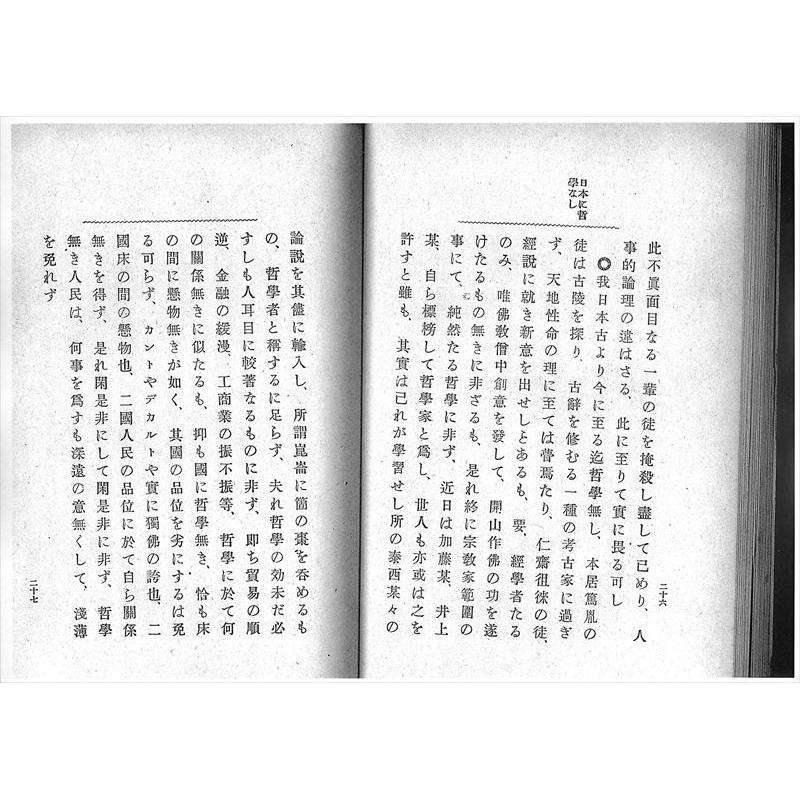 二十六
日本に哲
學なし
此不眞面目なる一輩の徒を掩殺し盡して已めり、人
事的論理の違はさる、此に至りて實に畏る可し
◎我日本古より今に至る迄哲學無し、本居篤胤の
徒は古陵を探り、古辭を修むる一種の考古家に過ぎ
ず、天地性命の理に至ては瞢焉たり、仁齋徂徠の徒、
經説に就き新意を出せしとあるも、要、經學者たる
のみ、唯佛敎僧中創意を發して、開山作佛の功を遂
けたるもの無きに非ざるも、是れ終に宗敎家範圍の
事にて、純然たる哲學に非ず、近日は加藤某、井上
某、自ら標榜して哲學家と爲し、世人も亦或は之を
許すと雖も、其實は已れが學習せし所の泰西某々の
論説を其儘に輸入し、所謂崑崙に箇の棗を呑めるも
の、哲學者と稱するに足らず、夫れ哲學の効未だ必
すしも人耳目に較著なるものに非ず、即ち貿易の順
逆、金融の緩漫、工商業の振不振等、哲學に於て何
の關係無きに似たるも、抑も國に哲學無き、恰も床
の間に懸物無きが如く、其國の品位を劣にするは免
る可らず、カントやデカルトや實に獨佛の誇也、二
國床の間の懸物也、二國人民の品位に於て自ら關係
無きを得ず、是れ閑是非にして閑是非に非ず、哲學
無き人民は、何事を爲すも深遠の意無くして、淺薄
を免れず
二十七